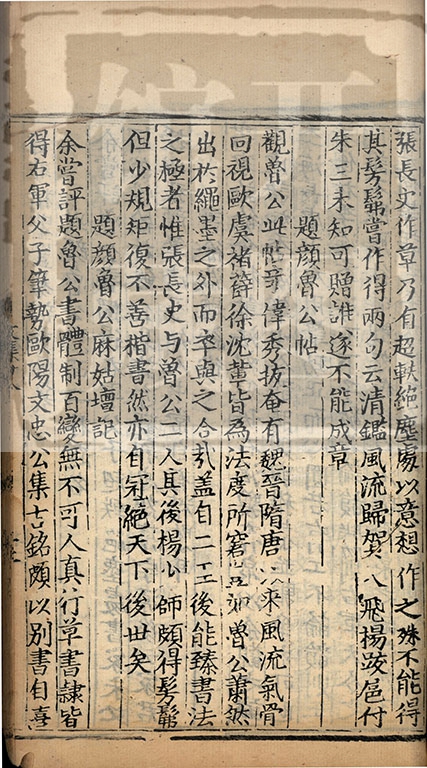 張長史作草乃有超軼絕塵處以意想作之殊不能得
其髣髴嘗作得兩句云清鑑風流歸賀八飛揚跋扈付
朱三未知可贈誰遂不能成章
題顔魯公帖
觀魯公此帖奇偉秀拔奄有魏晉隋唐以來風流氣骨
回視歐虞褚薛徐沈輩皆為法度所窘豈如魯公蕭然
出於繩墨之外而卒與之合哉蓋自二王後能臻書法
之極者惟張長史与魯公二人其後楊少師頗得髣髴
但少規矩復不善楷書然亦自冠絕天下後世矣
題顔魯公麻姑壇記
余嘗評題魯公書體制百變無不可人真行草書隸皆
得右軍父子筆勢歐陽文忠公集古銘頗以別書自喜